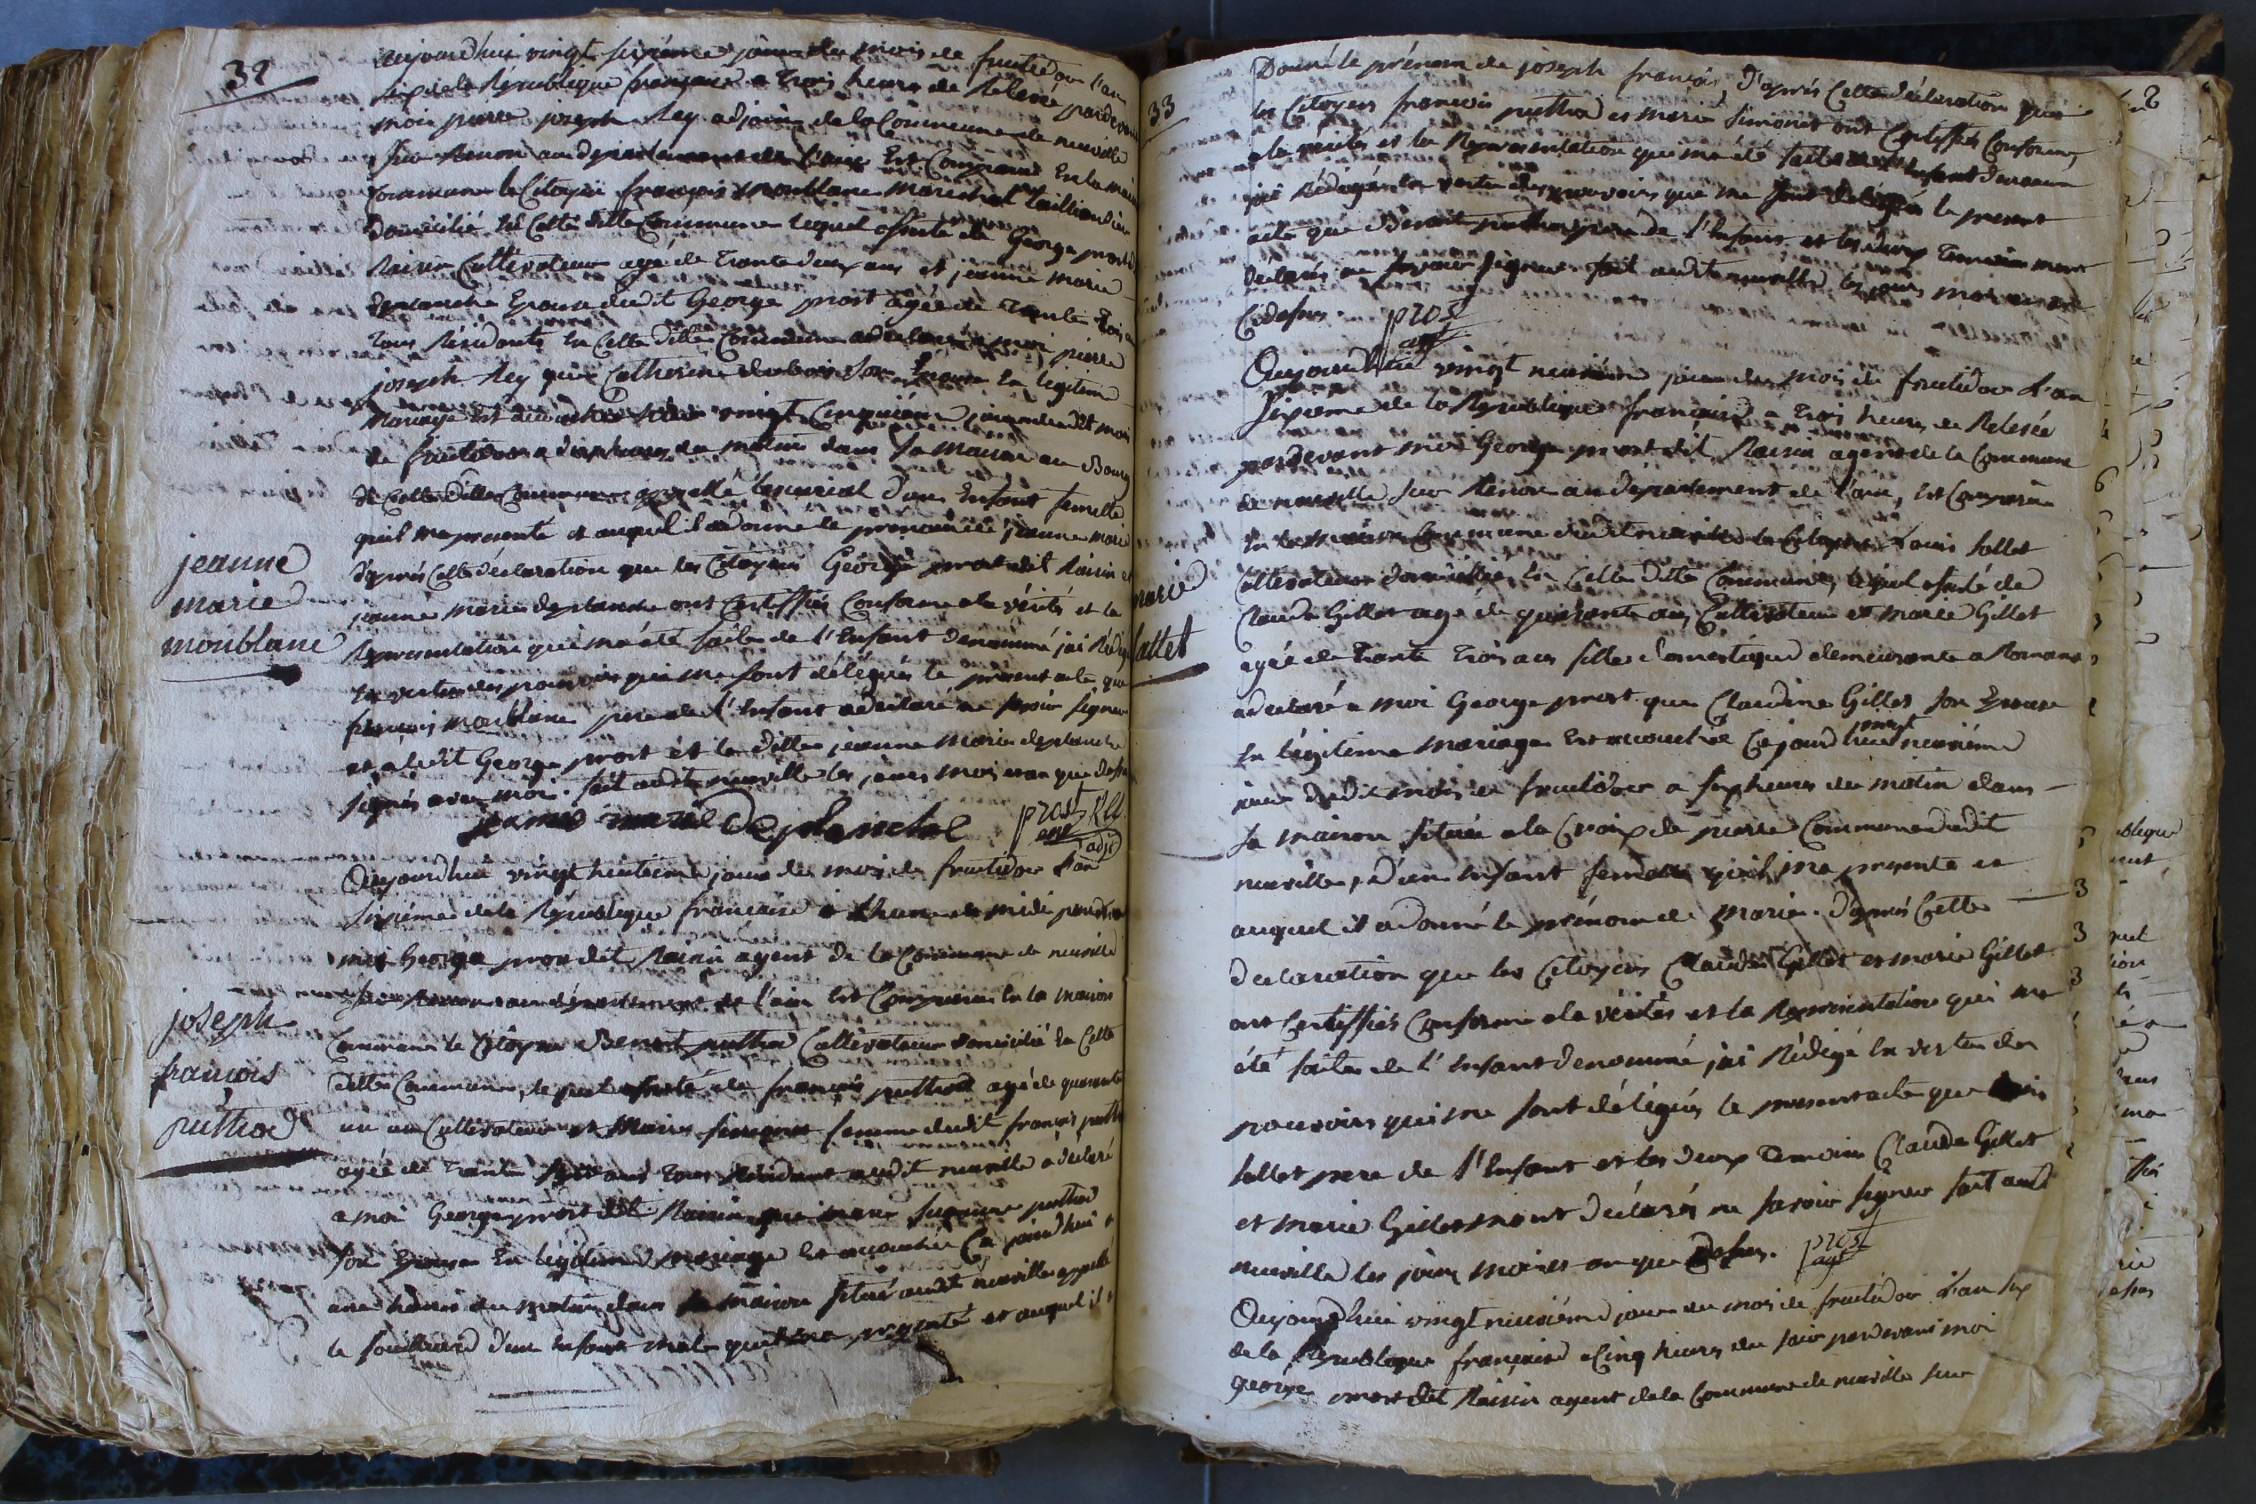 32
aujourdhui vingt sixième jour du mois de fructidor l'an
six de la République française a trois heures de Relevé pardevant
moi pierre joseph Rey adjoint de la Commune de neuville
sur Renon au département de l'ain Est Comparu En la maison
Commune le Citoyen françois monblanc marechal tailliandier
domicilié En Cette ditte Commune lequel assisté de George prost dit
Raisin Cultivateur agé de trante deux ans et jeanne marie
deplanche Epouse dudit George prost agée de trante trois ans
tous Résidants En Cette ditte Commune a declaré a moi pierre
joseph Rey que Catherine dubois son Epouse En légitime
Mariage est accouchée hier vingt Cinquième jour dudit mois
de fructidor a dix heures du matin dans sa maison au Bourg
de Cette ditte Commune d'un Enfant femelle
quil ma presenté et auquel il a donné le prenom de jeanne marie
d'après Cette déclaration que les Citoyens George prost dit Raisin et
jeanne marie deplanche ont Certiffiés Conforme a la vérité et la
Representation qui ma été faite de l'Enfant denommé jai Rédigé
En vertu des pouvoirs qui me sont délégués le présent acte que
françois monblanc pere de l'Enfant a déclaré ne savoir signer
et a ledit George prost et la ditte jeanne Marie deplanche
signés avec moi. fait audit neuville les jours mois et an que dessus
jeanne marie Deplanche prost agt Rey adjt
jeanne
marie
monblanc
Aujourdhui vingt huitième jour du mois de fructidor l'an
sixième de la République française a heure de midi pardevant
moi George prost dit Raisin agent de la Commune de neuville
sur Renon au département de l'ain Est Comparu En la maison
Commune le Citoyen Benoit puthod Cultivateur domicilié En Cette
ditte Commune, lequel assisté de françois puthod agé de quarante
un an Cultivateur et Marie simonet femme dudit françois puthod
agée de trante sept ans tous Résidant audit neuville a déclaré
a moi George prost dit Raisin que marie Suzanne puthod
son Epouse En légitime mariage Est accouchée Ce jourdhui a
une heure du matin dans sa maison située audit neuville appellé
le souilliard d'un Enfant male quil ma presenté et auquel il a
joseph
françois
puthod
33
Donné le prénom de joseph françois, d'après Cette déclaration que
les Citoyens françois puthod et marie Simonet ont Certiffiés Conforme
a la vérité et la Representation qui ma été faite de l'Enfant denommé
jai Rédigé En vertu des pouvoirs que me sont délégués le present
acte que Benoit puthod père de l'Enfant et les deux Temoins mont
declarés ne savoir signer. fait audit neuville les jours mois et an
Cidessus. prost agt
Aujourdhui vingt neuvième jour du mois de fructidor l'an
Sixieme de la République française a trois heures de Relevée
pardevant moi George prost dit Raisin agent de la Commune
de neuville sur Renon au département de l'ain, Est Comparu
En la maison Commune dudit neuville le Citoyen Louis Sallet
Cultivateur domicilié En Cette ditte Commune, lequel assisté de
Claude Gillet agé de quarante ans, Cultivateur et marie Gillet
agée de trante trois ans fille domestique demeurante a Romans
a declaré a moi George prost que Claudine Gillet son Epouse
En légitime mariage Est accouchée Ce jourdhui vingt neuvième
jour dudit mois de fructidor a six heures du matin dans
sa maison située a la Croix de pierre Commune dudit
neuville, d'un Enfant femelle quil ma presenté et
auquel il a donné le prénom de Marie. d'après Cette
declaration que les Citoyens Claude Gillet et marie Gillet
ont Certiffiés Conforme a la vérité et la Representation qui ma
été faite de l'Enfant denommé, jai Rédigé En vertu des
pouvoirs qui me sont délégués le present acte que Louis
Sallet pere de l'Enfant et les deux Temoins Claude Gillet
et marie Gillet mont déclarés ne savoir signer fait audit
neuville les jours mois et an que dessus. prost agt
marie
Sallet
Aujourdhui vingt neuvième jour du mois de fructidor l'an six
de la République française a Cinq heures du soir pardevant moi
george prost dit Raisin agent de la Commune de neuville sur